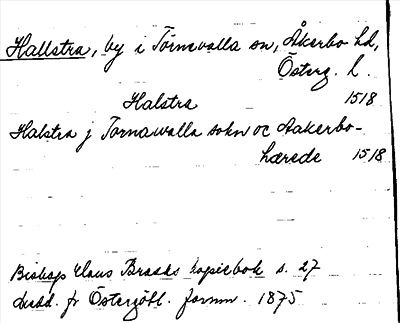 Hallstra, by i Törnevalla sn, Åkerbo hd,
Österg. l.
Halstra 1518
Halstra j Tornawalla sokn oc Aakerbo-
hærede 1518
Biskop Hans Brasks kopiebok s. 27
Medd. fr Östergötl. fornm. 1875